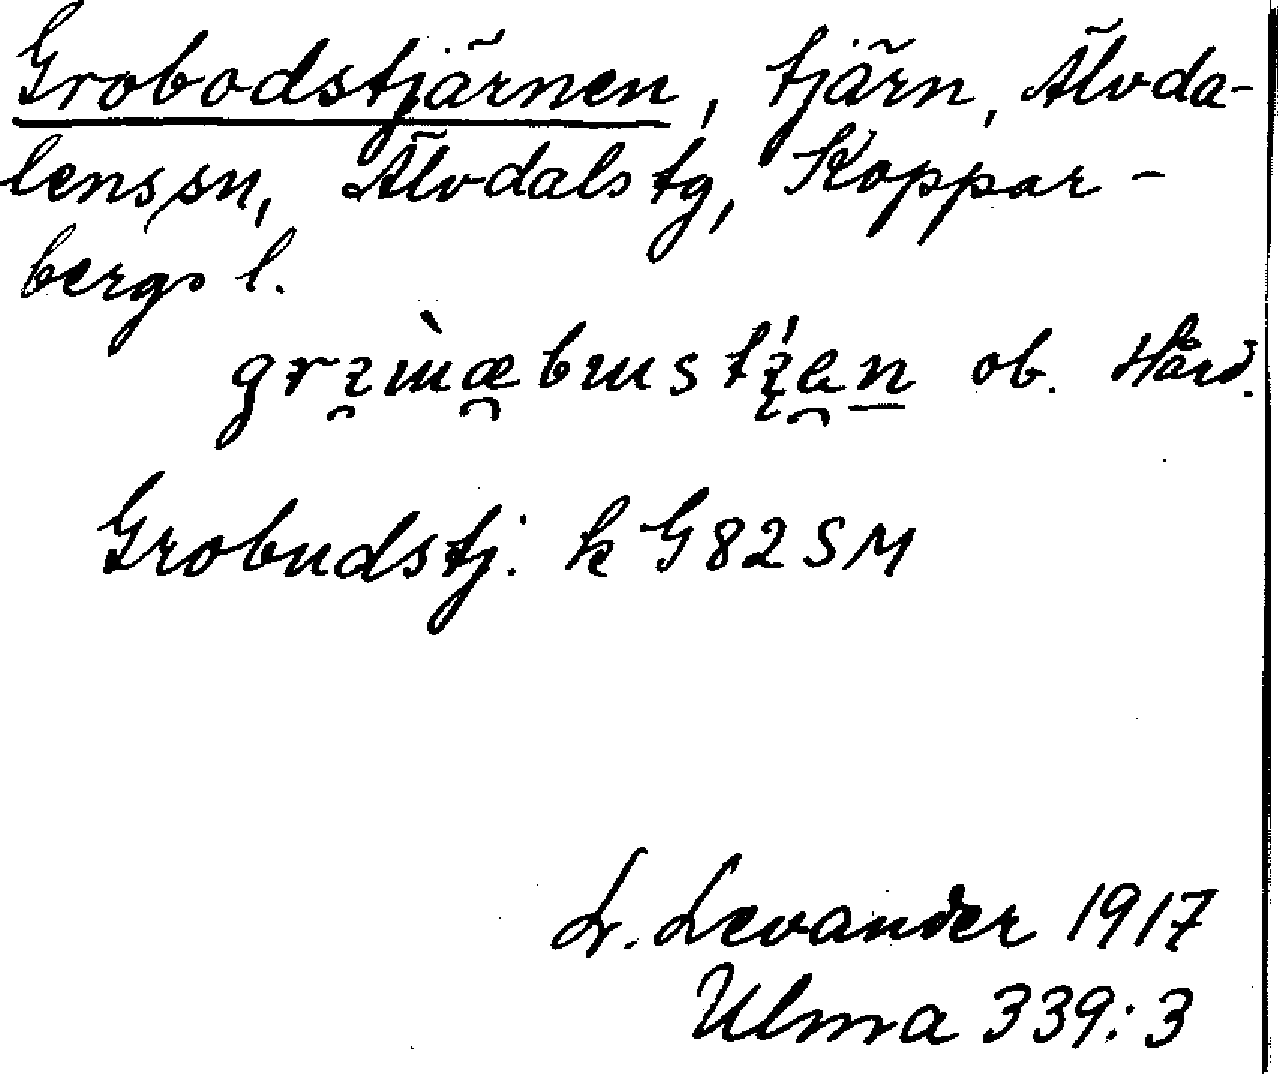 Grobodstjärnen, tjärn, Älvda-
lens sn, Älvdals tg, Koppar-
bergs l.
ob. Hård.
Grobudstj. k G82SM
L. Levander 1917
Ulma 339:3